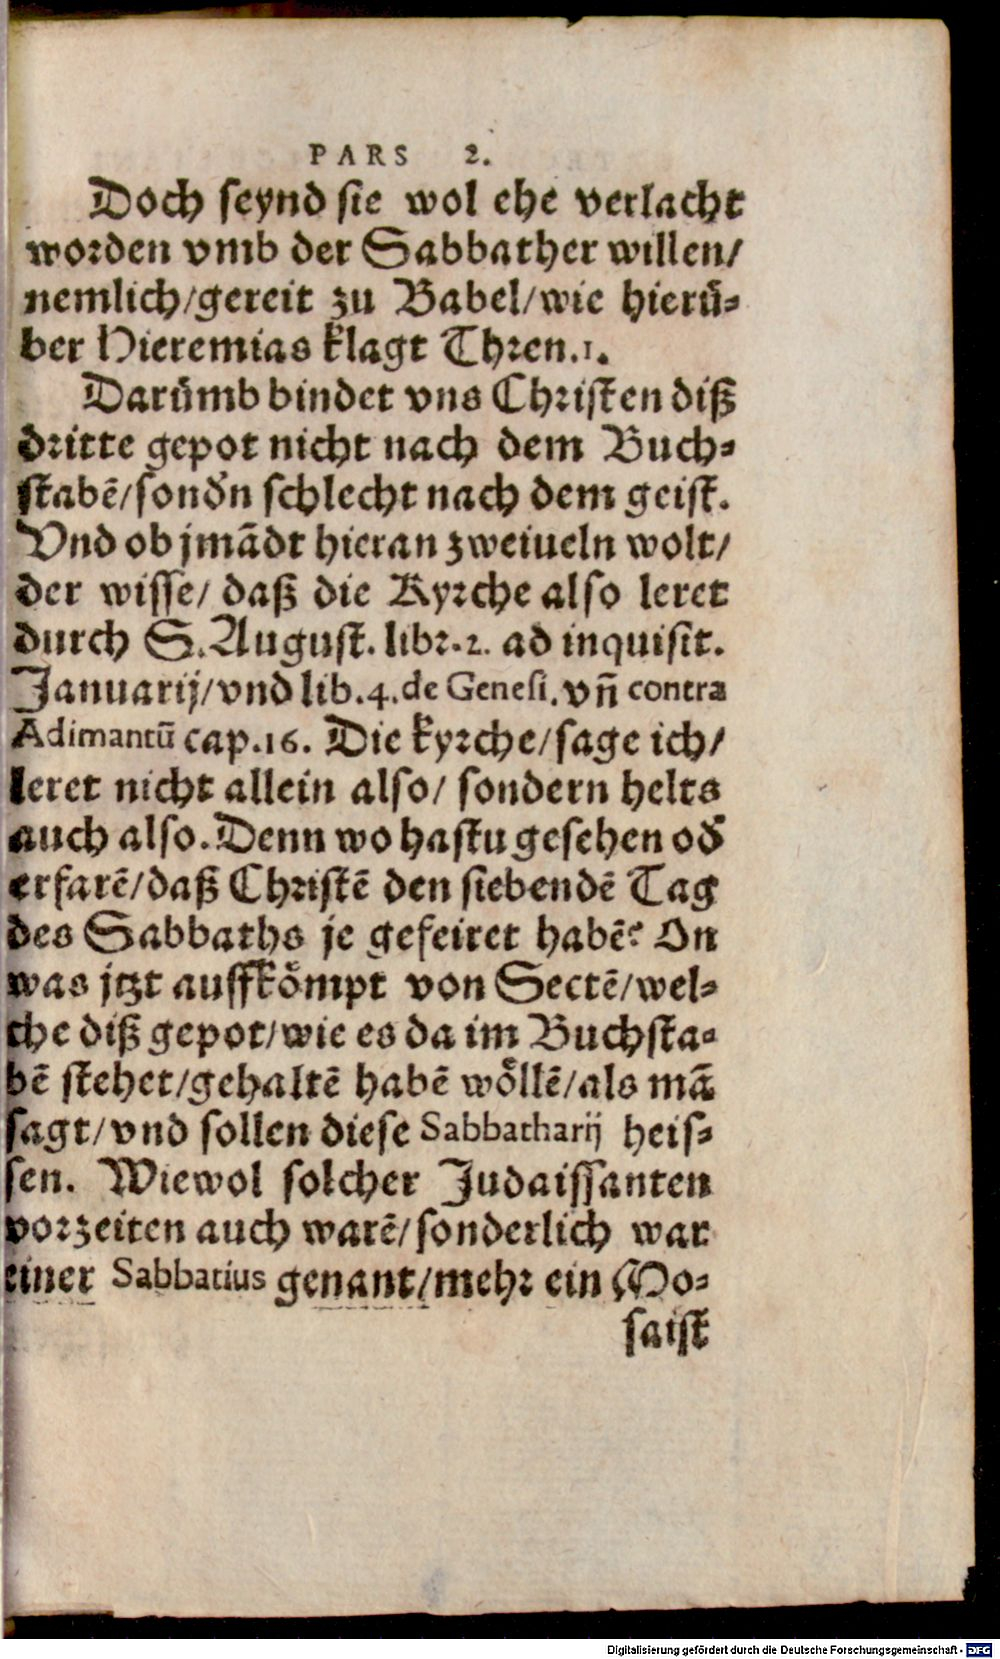 PARS 2.
Doch seynd sie wol ehe verlacht
worden vmb der Sabbather willen/
nemlich/gereit zu Babel/wie hierü-
ber Hieremias klagt Thren.1.
Darümb bindet vns Christen diß
dritte gepot nicht nach dem Buch-
stabē/sonđn schlecht nach dem geist.
Vnd ob jmādt hieran zweiueln wolt/
der wisse/ daß die Kyrche also leret
durch S.August. libr.2. ad inquisit.
Januarij/vnd lib.4.de Genesi.vñ contra
Adimantū cap.16. Die kyrche/sage ich/
leret nicht allein also/ sondern helts
auch also.Denn wo hastu gesehen ođ
erfarē/daß Christē den siebendē Tag
des Sabbaths je gefeiret habē? On
was jtzt auffkömpt von Sectē/wel-
che diß gepot/wie es da im Buchsta-
bē stehet/gehaltē habē wöllē/als mā
sagt/vnd sollen diese Sabbatharij heis-
sen. Wiewol solcher Judaissanten
vorzeiten auch warē/sonderlich war
einer Sabbatius genant/mehr ein Mo-
saist
Digitalisierung gefördert durch die Deutsche Forschungsgemeinschaft - DFG